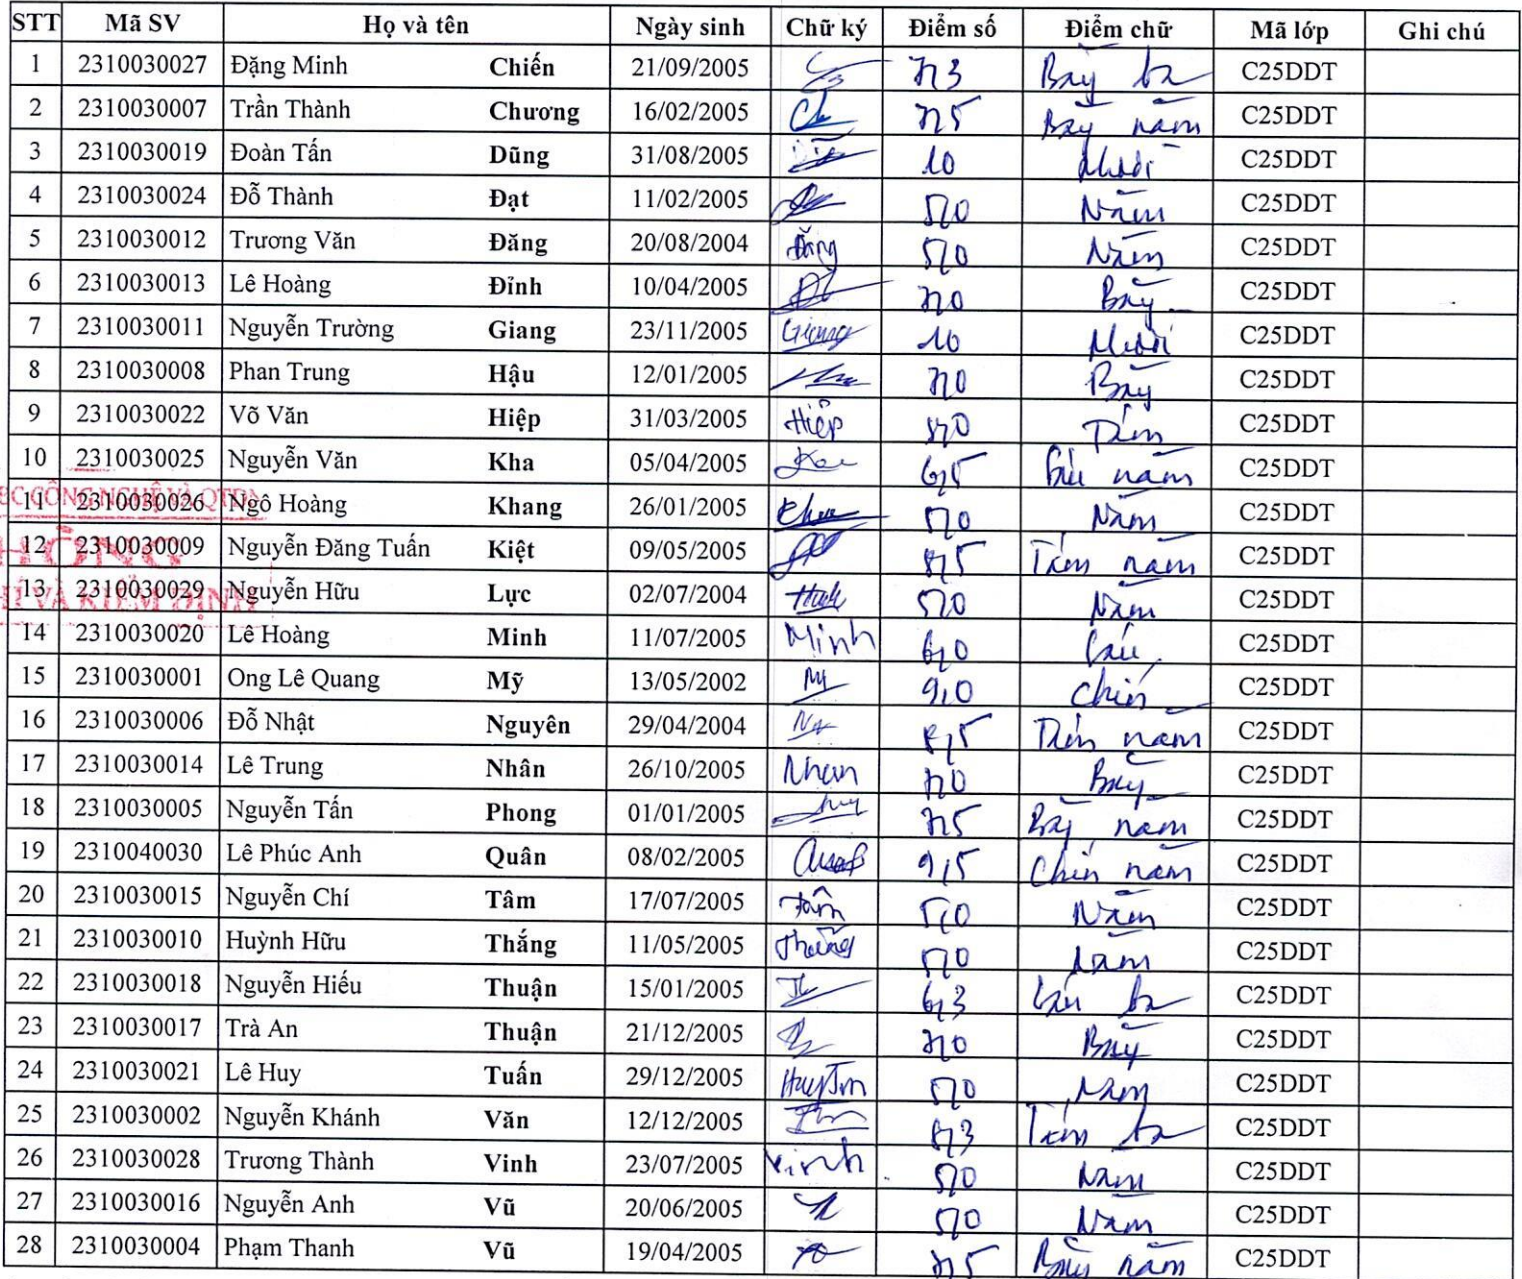 STT Mã SV Họ và tên Ngày sinh Chữ ký Điểm số Điểm chữ Mã lớp Ghi chú
1 2310030027 Đặng Minh Chiến 21/09/2005 7,3 Bảy ba C25DDT
2 2310030007 Trần Thành Chương 16/02/2005 7,5 Bảy năm C25DDT
3 2310030019 Đoàn Tấn Dũng 31/08/2005 10 Mười C25DDT
4 2310030024 Đỗ Thành Đạt 11/02/2005 5,0 Năm C25DDT
5 2310030012 Trương Văn Đăng 20/08/2004 Đăng 5,0 Năm C25DDT
6 2310030013 Lê Hoàng Đỉnh 10/04/2005 7,0 Bảy C25DDT
7 2310030011 Nguyễn Trường Giang 23/11/2005 Giang 10 Mười C25DDT
8 2310030008 Phan Trung Hậu 12/01/2005 7,0 Bảy C25DDT
9 2310030022 Võ Văn Hiệp 31/03/2005 Hiệp 8,0 Tám C25DDT
10 2310030025 Nguyễn Văn Kha 05/04/2005 6,5 Sáu năm C25DDT
11 2310030026 Ngô Hoàng Khang 26/01/2005 5,0 Năm C25DDT
12 2310030009 Nguyễn Đăng Tuấn Kiệt 09/05/2005 8,5 Tám năm C25DDT
13 2310030029 Nguyễn Hữu Lực 02/07/2004 5,0 Năm C25DDT
14 2310030020 Lê Hoàng Minh 11/07/2005 Minh 6,0 Sáu C25DDT
15 2310030001 Ong Lê Quang Mỹ 13/05/2002 9,0 Chín C25DDT
16 2310030006 Đỗ Nhật Nguyên 29/04/2004 8,5 Tám năm C25DDT
17 2310030014 Lê Trung Nhân 26/10/2005 Nhân 7,0 Bảy C25DDT
18 2310030005 Nguyễn Tấn Phong 01/01/2005 7,5 Bảy năm C25DDT
19 2310040030 Lê Phúc Anh Quân 08/02/2005 9,5 Chín năm C25DDT
20 2310030015 Nguyễn Chí Tâm 17/07/2005 Tâm 5,0 Năm C25DDT
21 2310030010 Huỳnh Hữu Thắng 11/05/2005 Thắng 5,0 Năm C25DDT
22 2310030018 Nguyễn Hiếu Thuận 15/01/2005 6,3 Sáu ba C25DDT
23 2310030017 Trà An Thuận 21/12/2005 7,0 Bảy C25DDT
24 2310030021 Lê Huy Tuấn 29/12/2005 5,0 Năm C25DDT
25 2310030002 Nguyễn Khánh Văn 12/12/2005 8,3 Tám ba C25DDT
26 2310030028 Trương Thành Vinh 23/07/2005 Vinh 5,0 Năm C25DDT
27 2310030016 Nguyễn Anh Vũ 20/06/2005 5,0 Năm C25DDT
28 2310030004 Phạm Thanh Vũ 19/04/2005 7,5 Bảy năm C25DDT